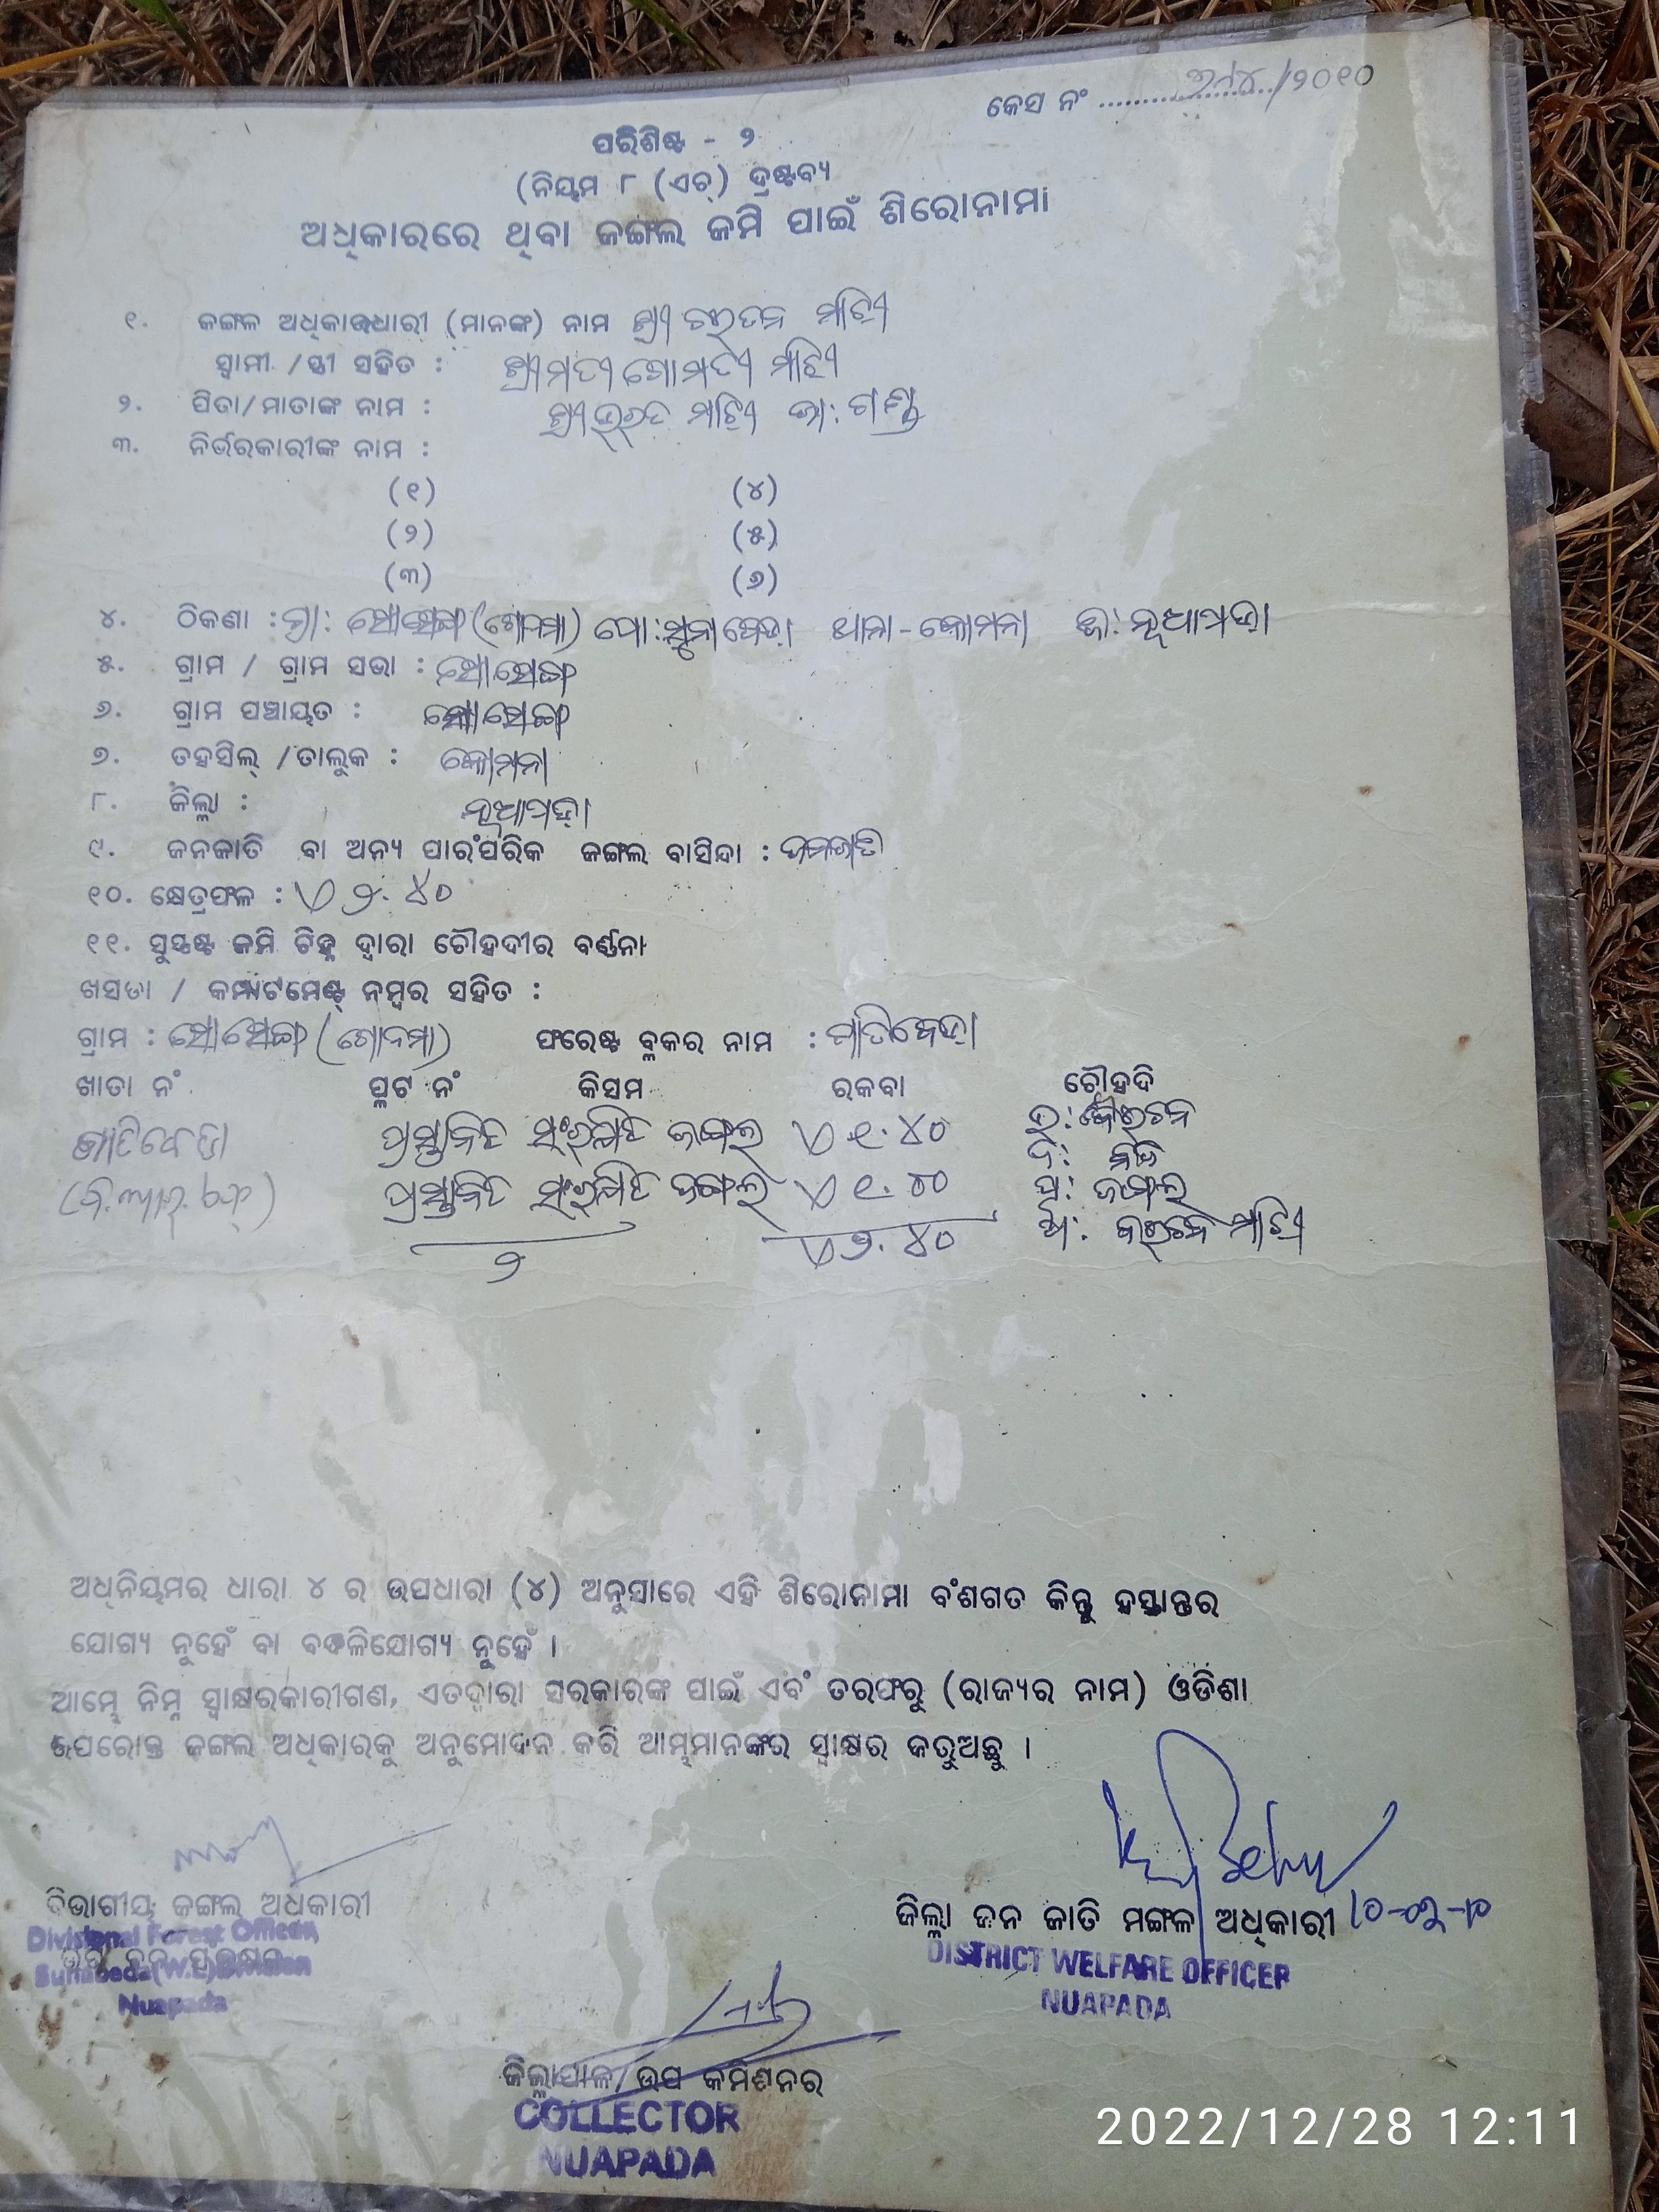 କେସ ନଂ ..................../୨୦୧୦
ପରିଶିଷ୍ଟ - ୨
(ନିୟମ ୮ (ଏଚ୍) ଦ୍ରଷ୍ଟବ୍ୟ
ଅଧିକାରରେ ଥିବା ଜଙ୍ଗଲ ଜମି ପାଇଁ ଶିରୋନାମା
୧. ଜଙ୍ଗଲ ଅଧିକାରଧାରୀ (ମାନଙ୍କ) ନାମ ଶ୍ରୀ ମାଝୀ
ସ୍ୱାମୀ /ସ୍ତ୍ରୀ ସହିତ : ଶ୍ରୀମତୀ ଗୋମତୀ ମାଝୀ
୨. ପିତା/ମାତାଙ୍କ ନାମ : ଶ୍ରୀ ମାଝୀ ଜା: ଗଣ୍ଡ
୩. ନିର୍ଭରକାରୀଙ୍କ ନାମ :
(୧) (୪)
(୨) (୫)
(୩) (୬)
୪. ଠିକଣା : ଗ୍ରା: ସୋସେଙ୍ଗ (ଗୋଦମା) ପୋ: ସୁନାବେଡ଼ା ଥାନା - କୋମନା ଜି: ନୂଆପଡ଼ା
୫. ଗ୍ରାମ / ଗ୍ରାମ ସଭା : ସୋସେଙ୍ଗ
୬. ଗ୍ରାମ ପଞ୍ଚାୟତ : ସୋସେଙ୍ଗ
୭. ତହସିଲ୍ /ତାଲୁକ : କୋମନା
୮. ଜିଲ୍ଲା : ନୂଆପଡ଼ା
୯. ଜନଜାତି ବା ଅନ୍ୟ ପାରଂପରିକ ଜଙ୍ଗଲ ବାସିନ୍ଦା : ଜନଜାତି
୧୦. କ୍ଷେତ୍ରଫଳ : ୨.୪୦
୧୧. ସୁସ୍ପଷ୍ଟ ଜମି ଚିହ୍ନ ଦ୍ୱାରା ଚୌହଦୀର ବର୍ଣ୍ଣନା
ଖସଡା / କମ୍ପାଟମେଣ୍ଟ୍ ନମ୍ବର ସହିତ :
ଗ୍ରାମ : ସୋସେଙ୍ଗ (ଗୋଦମା) ଫରେଷ୍ଟ ବ୍ଲକର ନାମ : ପାତିବେଡ଼ା
ଖାତା ନଂ ପ୍ଲଟ ନଂ କିସମ ରକବା ଚୌହଦି
ପାତିବେଡ଼ା ପ୍ରସ୍ତାବିତ ସଂରକ୍ଷିତ ଜଙ୍ଗଲ ୧.୪୦ ଉ:
(ବି.ଆର୍.ଏଫ୍) ପ୍ରସ୍ତାବିତ ସଂରକ୍ଷିତ ଜଙ୍ଗଲ ୧.୦୦ ଦ:
ପୂ: ଜଙ୍ଗଲ
୨ ୨.୪୦ ପ: ମାଝୀ
ଅଧିନିୟମର ଧାରା ୪ ର ଉପଧାରା (୪) ଅନୁସାରେ ଏହି ଶିରୋନାମା ବଂଶଗତ କିନ୍ତୁ ହସ୍ତାନ୍ତର
ଯୋଗ୍ୟ ନୁହେଁ ବା ବଦଳିଯୋଗ୍ୟ ନୁହେଁ ।
ଆମ୍ଭେ ନିମ୍ନ ସ୍ୱାକ୍ଷରକାରୀଗଣ, ଏତଦ୍ୱାରା ସରକାରଙ୍କ ପାଇଁ ଏବଂ ତରଫରୁ (ରାଜ୍ୟର ନାମ) ଓଡିଶା
ଉପରୋକ୍ତ ଜଙ୍ଗଲ ଅଧିକାରକୁ ଅନୁମୋଦନ କରି ଆମ୍ଭମାନଙ୍କର ସ୍ୱାକ୍ଷର କରୁଅଛୁ ।
ବିଭାଗୀୟ ଜଙ୍ଗଲ ଅଧିକାରୀ
Divisional Forest Officer,
Sunabeda(W.L)Division
Nuapada
ଜିଲ୍ଲା ଜନ ଜାତି ମଙ୍ଗଳ ଅଧିକାରୀ
DISTRICT WELFARE OFFICER
NUAPADA
ଜିଲ୍ଲାପାଳ/ଉପ କମିଶନର
COLLECTOR
NUAPADA
2022/12/28 12:11